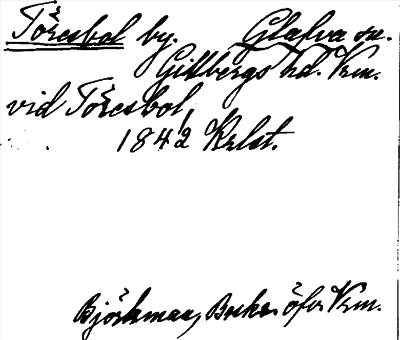 Töresbol by. Glafva sn.
Gillbergs hd. Vrm.
vid Töresbol,
1842 Krlst.
Björkman, Beskr. öfv. Vrm.